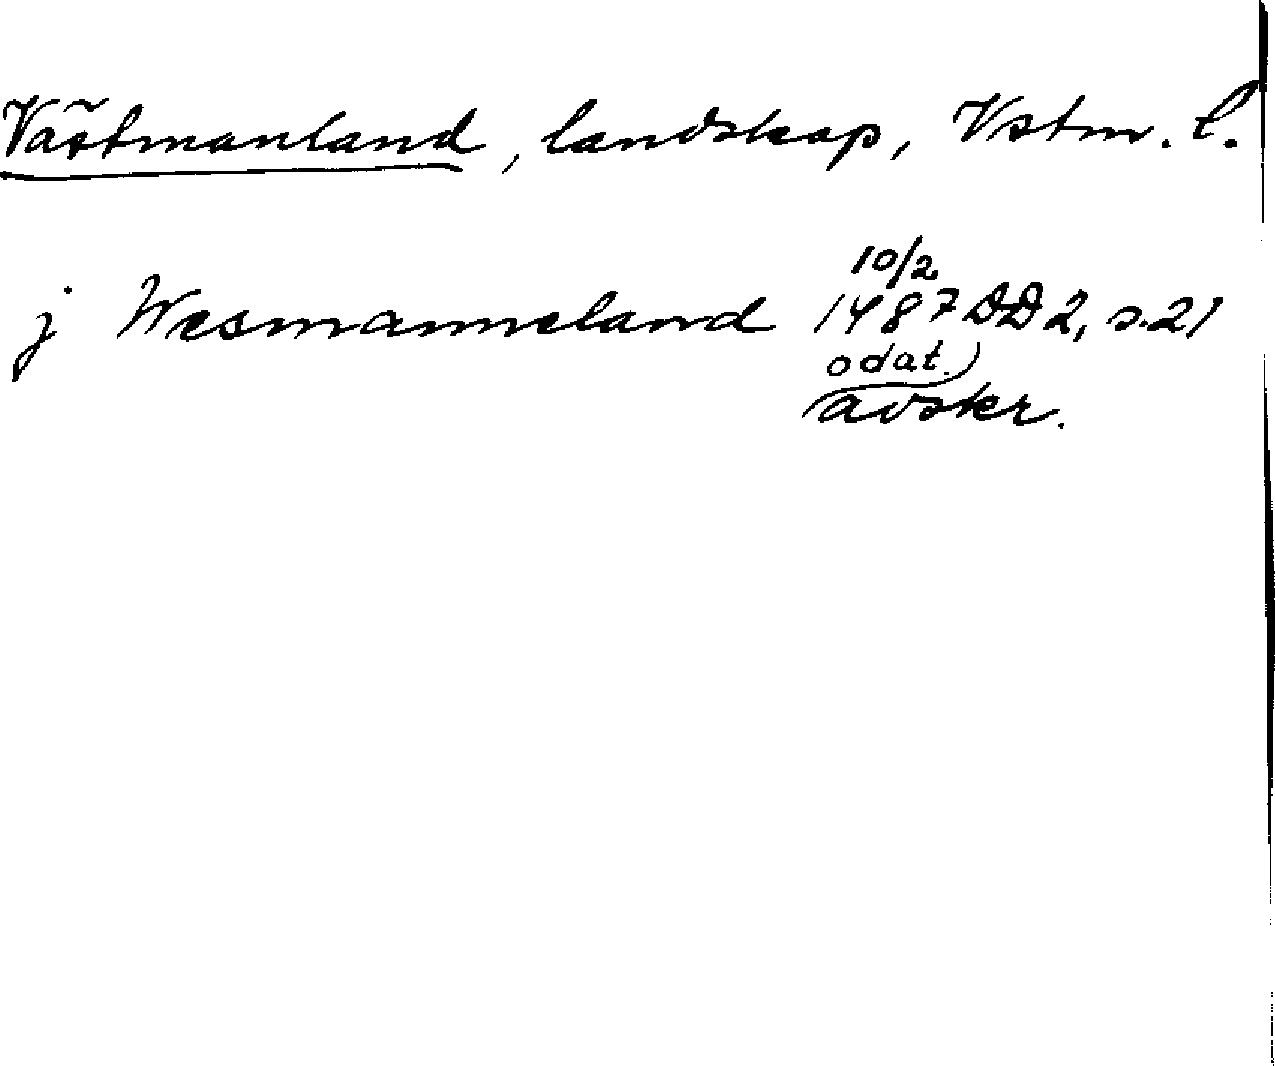 Västmanland, landskap, Vstm. l.
10/2
j Wesmanneland 1487 DD2, s.21
odat.)
avskr.